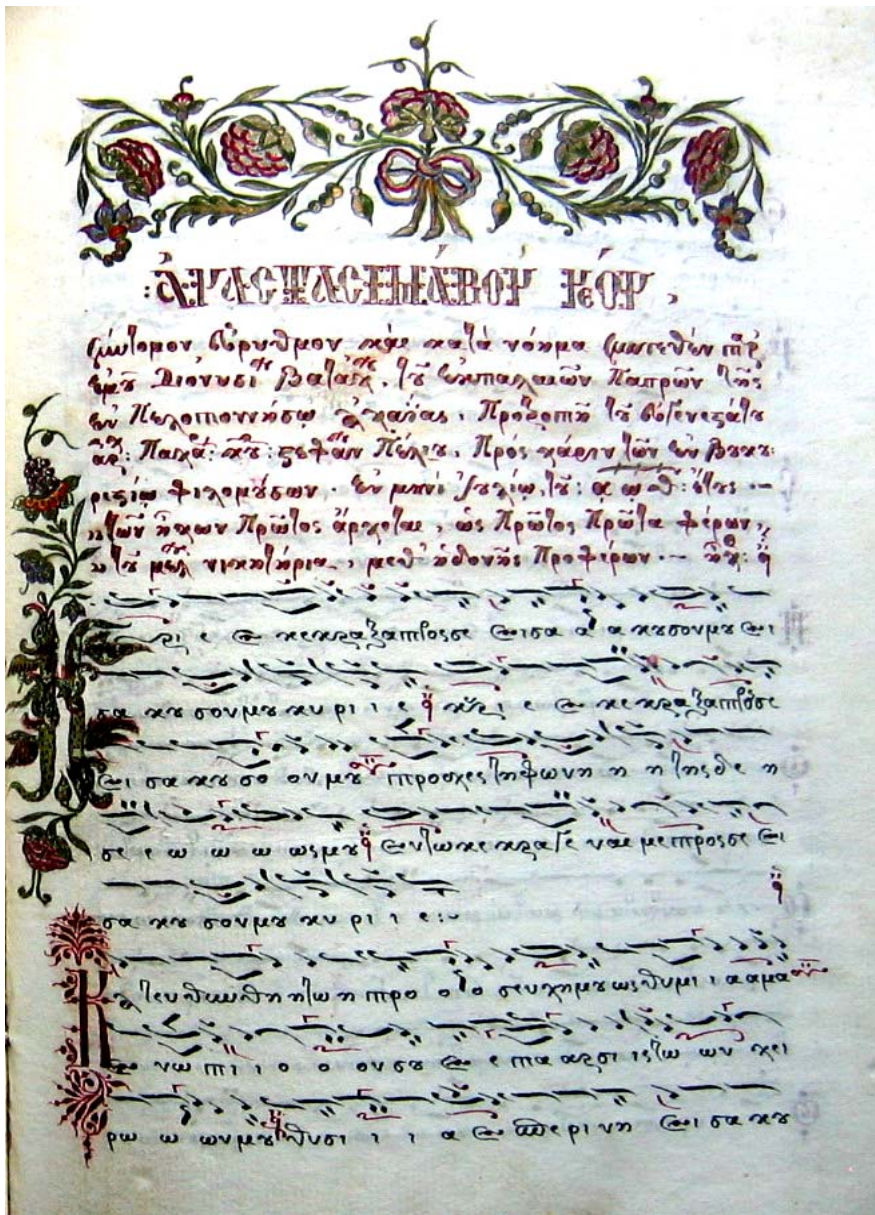 ἈΝΑΣΤΑΣΙΜΑΤΆΡΙΟΝ ΝΈΟΝ
σύντομον εὔρυθμον καὶ κατὰ νόημα συντεθὲν παρ
ἐμοῦ Διονυσί Βατατζ, τοῦ ἐκ παλαιῶν Πατρῶν τῆς
ἐν Πελοποννήσῳ Ἀχαΐας. Προτροπῇ τοῦ εὐγενεστάτου
Πέλιυ, Πρὸς χάριν τῶν ἐν Βουκου:
ρεστίῳ φιλομούσων. ἐν μηνὶ Ἰουλίῳ, τοῦ: αωθ: ἔτους
τῶν ἤχων Πρῶτος ἄρχεται, ὡς Πρῶτος Πρῶτα φέρων,
νικητήρια, μεθ' ἡδονῆς Προφέρων.
Κύ ρι ε ε κεκραξα προς σε εισα α α κουσον μου ει
σα κου σον μου κυ ρι ι ε κυρι ε ε κεκραξα προς σε
ει σα κου σο ον μου προσχες τη φωνη η η της δε η
σε ε ω ω ω ως μου εν τω κε κραγε ναι με προς σε ει
σα κου σον μου κυ ρι ι ε :
Κατευθυνθη η τω η προ ο ο σευχη μου ως θυμι ι α αμα
ε νω πι ι ο ο ον σου ε ε πα αρσι ις τω ων χει
ρω ω ων μου θυσι ι ι α ε εσπερι νη ει σα κου